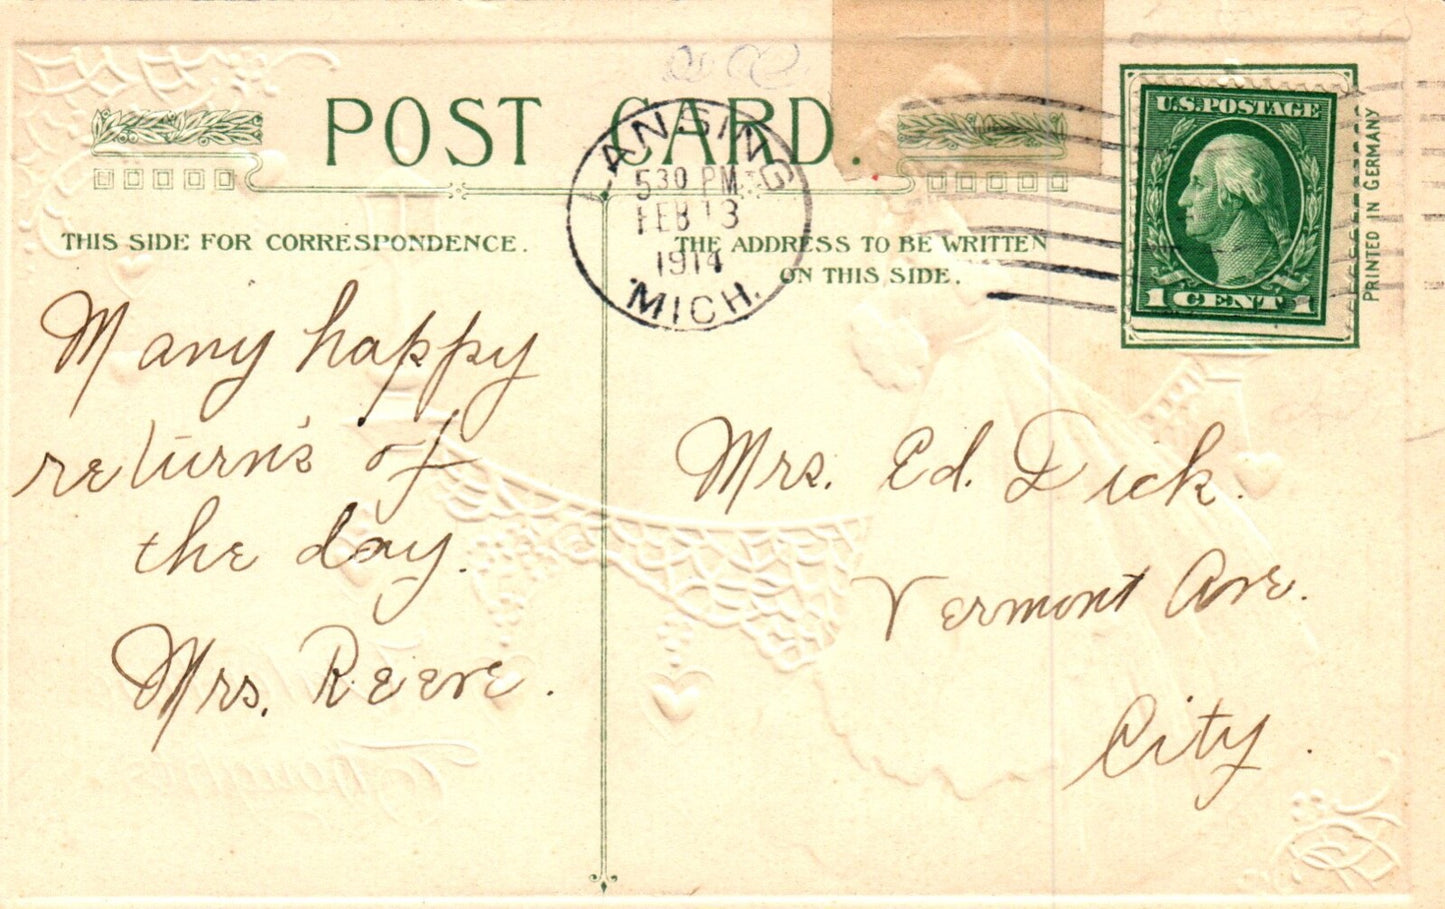 POST CARD.
THIS SIDE FOR CORRESPONDENCE.
THE ADDRESS TO BE WRITTEN
ON THIS SIDE.
LANSING
5 30 PM
FEB 13
1914
MICH.
U.S. POSTAGE
1 CENT 1
PRINTED IN GERMANY
Many happy
return's of
the day.
Mrs. Reeve.
Mrs. Ed. Dick.
Vermont Ave.
City.